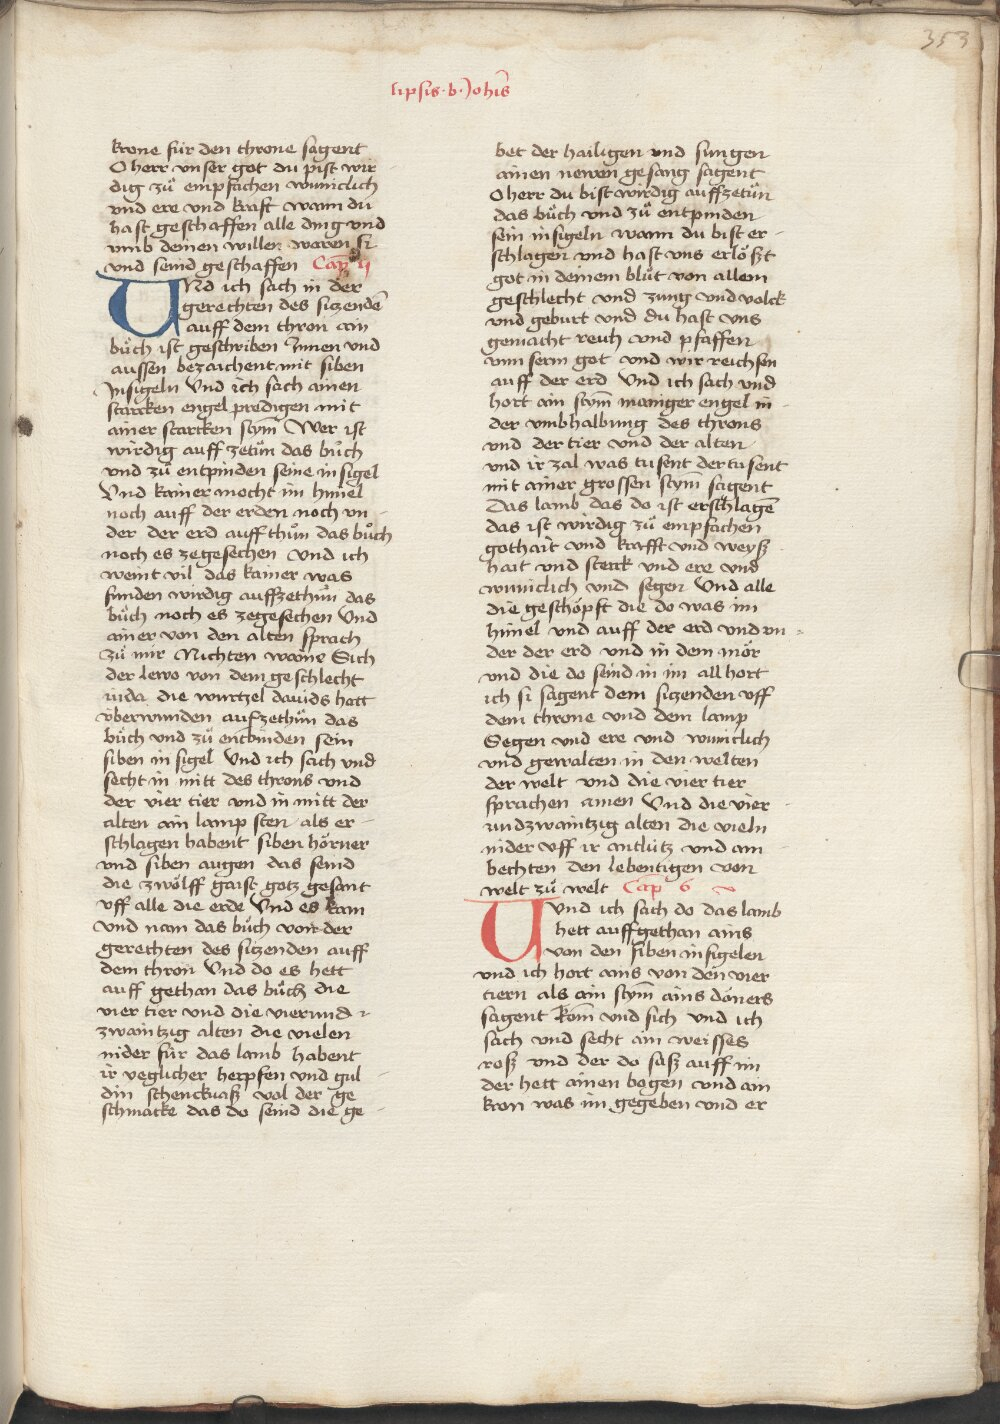 353
lipsis · b · Johis
krone für den throne sagent
O herr vnser got du pist wir
dig zů empfachen wuniclich
vnd ere vnd kraft wann du
hast geschaffen alle ding vnd
vmb deinen willen waren si
vnd seind geschaffen Cap
VNd ich sach in der
gerechten des siczendē
auff dem thron ain
bůch ist geschriben Innen vnd
aussen bezaichent mit siben
Insigeln Vnd ich sach ainen
starcken engel predigen mit
ainer starcken stym̄ Wer ist
wirdig auff zetůn das bůch
vnd zů entpinden seine in sigel
Vnd kainer mocht im himel
noch auff der erden noch vn
der der erd auff thůn das bůch
noch es zegesechen Vnd ich
weint vil das kainer was
funden wirdig auffzethůn das
bůch noch es zegesechen Vnd
ainer von den alten sprach
zů mir Nichten waine Sich
der lewo von dem geschlecht
iuda die wurtzel dauids hatt
vberwunden aufzethůn das
bůch vnd zů entbinden sein
siben in sigel Vnd ich sach vnd
secht in mitt des throns vnd
der vier tier vnd in mitt der
alten ain lamp sten als er
schlagen habent siben hörner
vnd siben augen das seind
die zwölff gaist gotz gesant
vff alle die erde Vnd es kam
vnd nam das bůch von der
gerechten des siczenden auff
dem thron Vnd do es hett
auff gethan das bůch die
vier tier vnd die vierund
zwaintzig alten die vielen
nider für das lamb habent
ir yeglicher herpfen vnd gul
din schenckuaß vol der ge
schmacke das do seind die ge
bet der hailigen vnd sungen
ainen newen gesang sagent
O herr du bist wirdig auffzetůn
das bůch vnd zů entpinden
sein insigeln wann du bist er
schlagen vnd hast vns erlößt
got in deinem blůt von allem
geschlecht vnd zung vnd volck
vnd geburt vnd du hast vns
gemacht reich vnd pfaffen
vnserm got vnd wir reichsen
auff der erd Vnd ich sach vnd
hort ain stym̄ maniger engel in
der vmbhalbung des throns
vnd der tier vnd der alten
vnd ir zal was tusent der tusent
mit ainer grossen stym̄ sagent
Das lamb das do ist erschlagē
das ist wirdig zů empfachen
gothait vnd krafft vnd weyß
hait vnd sterck vnd ere vnd
wuniclich vnd segen Vnd alle
die geschöpft die do was im
himel vnd auff der erd vnd vn
der der erd vnd in dem mör
vnd die do seind in im all hort
ich si sagent dem siczenden vff
dem throne vnd dem lamp
Segen vnd ere vnd wuniclich
vnd gewalten in den welten
der welt vnd die vier tier
sprachen amen Vnd die vier
undzwaintzig alten die vieln
nider vff ir antlütz vnd an
bechten den lebentigen von
welt zů welt Cap 6
Vvnd ich sach do das lamb
hett auffgethan ains
von den siben insigelen
vnd ich hort ains von den vier
tiern als ain stym̄ ains doners
sagent kom̄ vnd sich vnd ich
sach vnd secht ain weisses
roß vnd der do saß auff im
der hett ainen bogen vnd ain
kron was im gegeben vnd er